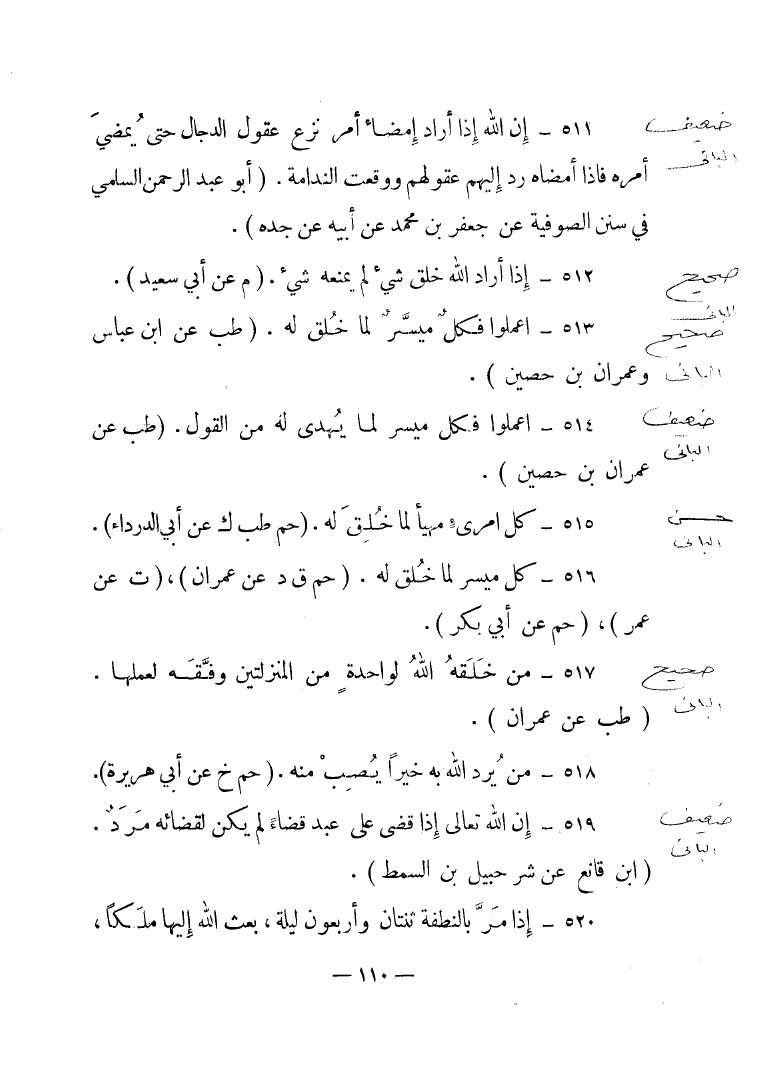 ضعيف ٥١١ – إِن الله إِذا أراد إِمضاءً أمر نزع عقول الدجال حتى يُمضيَ
البانى أمره فاذا أمضاه رد إِليهم عقولهم ووقعت الندامة . ( أبو عبد الرحمن السلمي
في سنن الصوفية عن جعفر بن محمد عن أبيه عن جده ) .
صحيح ٥١٢ – إِذا أراد الله خلق شيءٍ لم يمنعه شيءٌ . ( م عن أبي سعيد ) .
البانى
صحيح ٥١٣ – اعملوا فكلٌ ميسَّرٌ لما خُلق له . ( طب عن ابن عباس
البانى وعمران بن حصين ) .
ضعيف ٥١٤ – اعملوا فكل ميسر لما يُهدى له من القول . (طب عن
البانى عمران بن حصين ) .
حسن ٥١٥ – كل امرىءٍ مهيأ لما خُلِقَ له . (حم طب ك عن أبي الدرداء) .
البانى
٥١٦ – كل ميسر لما خُلق له . ( حم ق د عن عمران ) ، ( ت عن
عمر ) ، ( حم عن أبي بكر ) .
صحيح ٥١٧ – من خَلَقهُ اللهُ لواحدةٍ من المنزلتين وفَّقَه لعملها .
البانى ( طب عن عمران ) .
٥١٨ – من يُرد الله به خيراً يُصِبْ منه . ( حم خ عن أبي هريرة).
ضعيف ٥١٩ – إِن الله تعالى إِذا قضى على عبد قضاءً لم يكن لقضائه مَرَدٌ .
البانى ( ابن قانع عن شرحبيل بن السمط ) .
٥٢٠ – إِذا مَرَّ بالنطفة ثنتان وأربعون ليلة ، بعث الله إِليها ملَكاً ،
– ١١٠ –